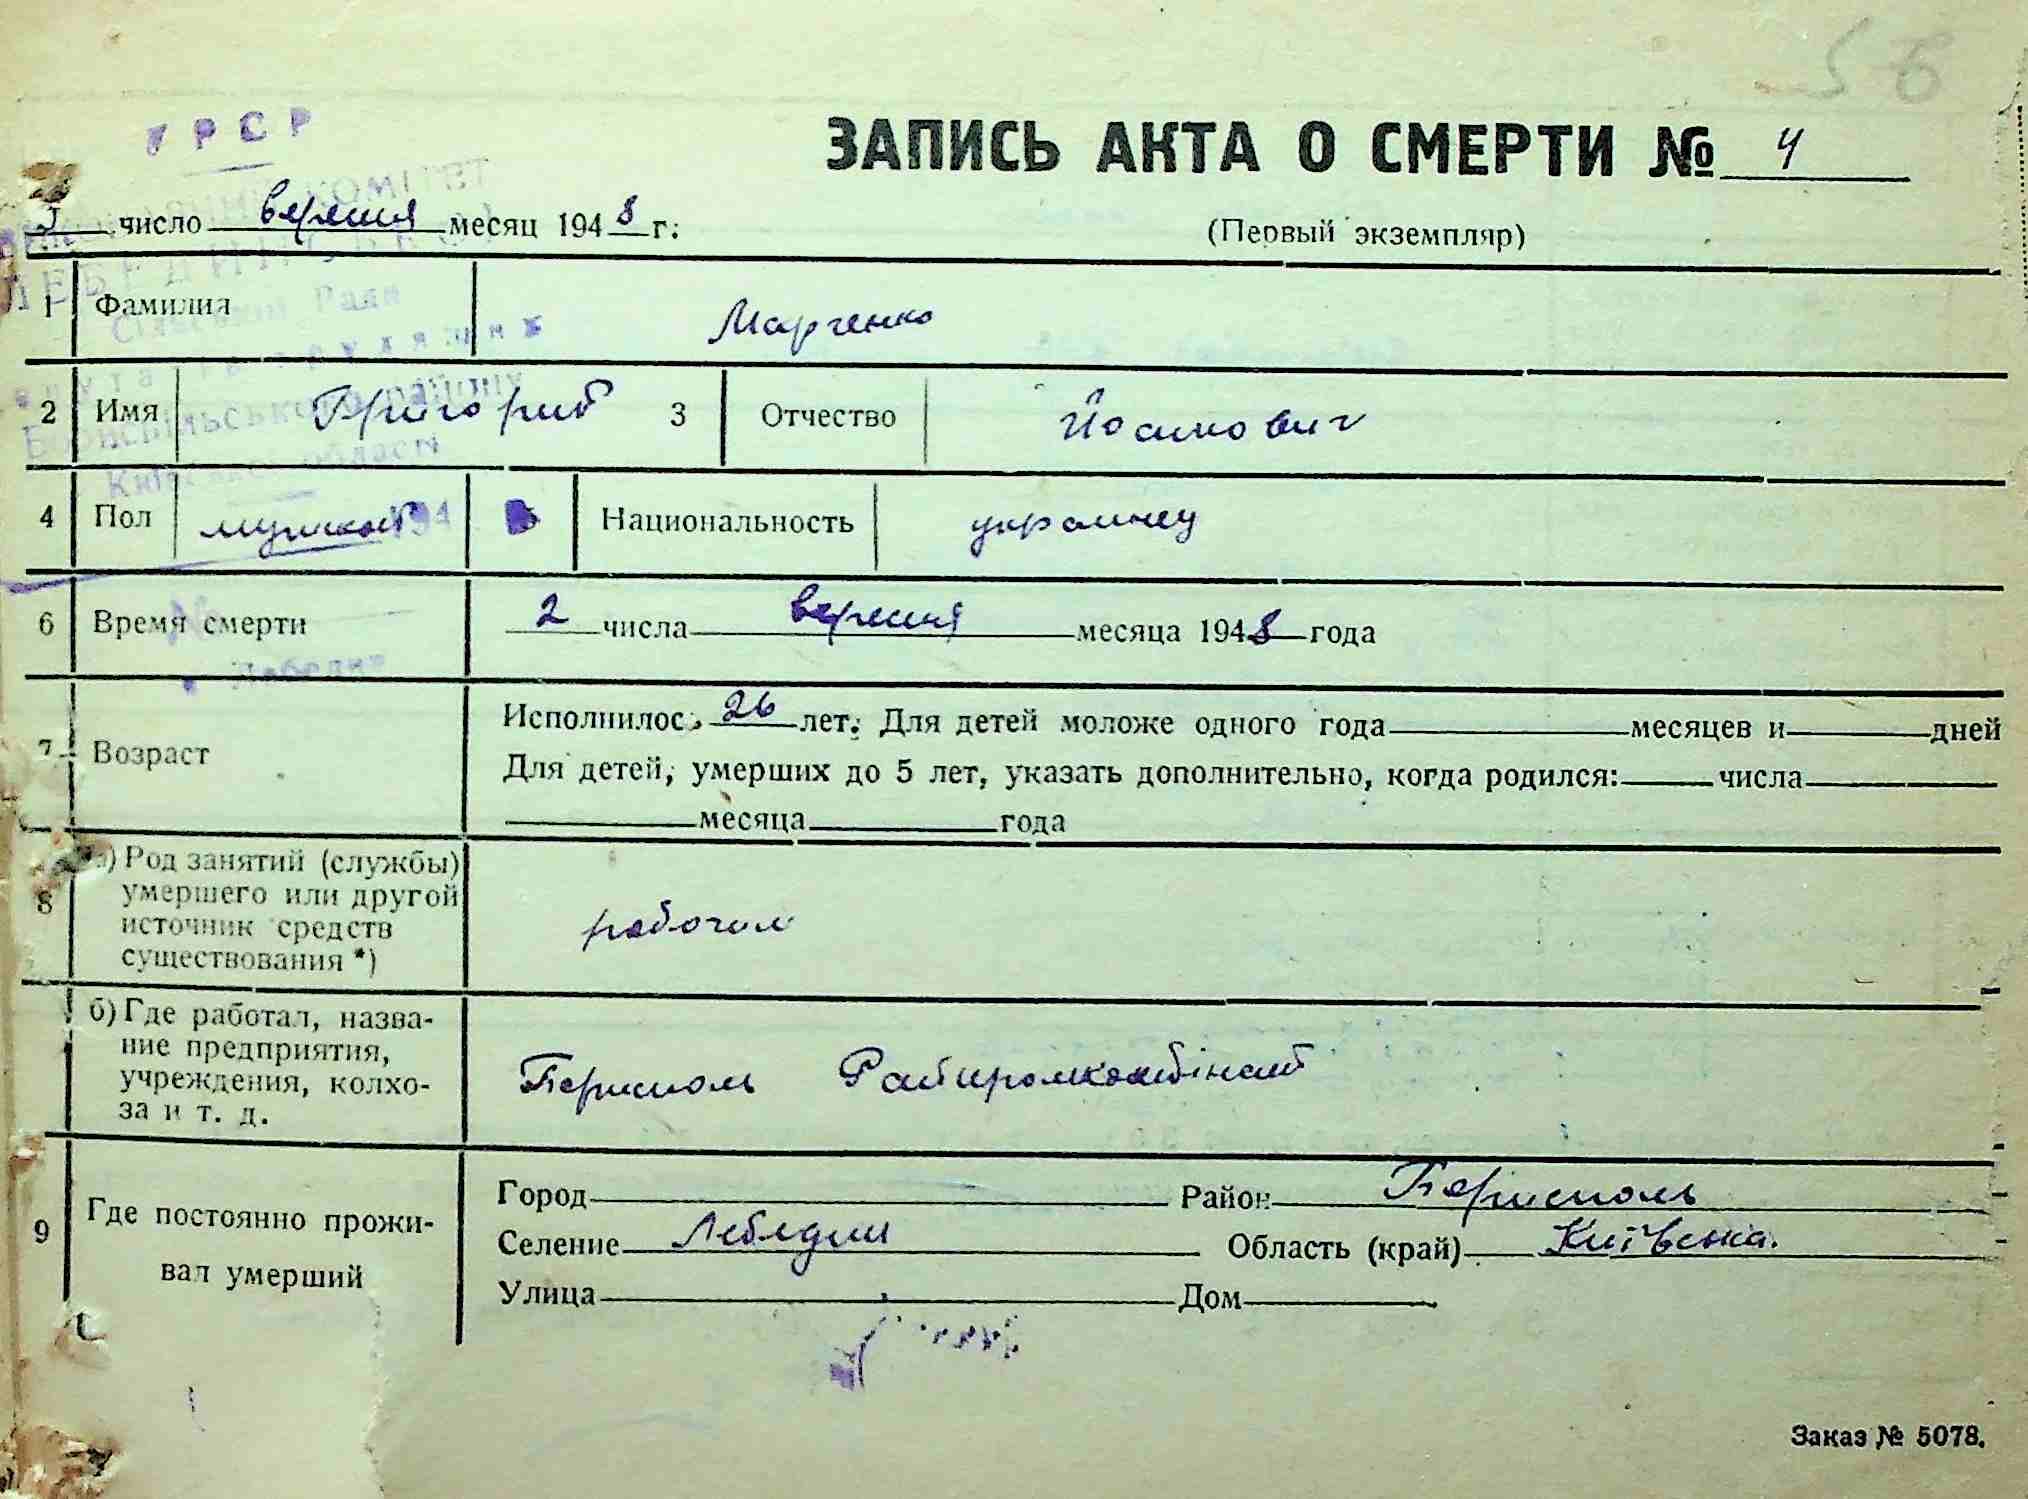 56
УРСР
ЗАПИСЬ АКТА О СМЕРТИ № 4
КОМІТЕТ
число вересня месяц 1948 г.
(Первый экземпляр)
ЛЕБЕДИНСЬКОЇ
1 Фамилия Марченко
Сільської Ради
депутатів трудящих
2 Имя Григорий 3 Отчество Йосипович
Бориспільського району
Київської області
4 Пол мужской 194 5 Национальность украинец
6 Время смерти 2 числа вересня месяца 1948 года
Лебедин
7 Возраст Исполнилось 26 лет. Для детей моложе одного года месяцев и дней
Для детей, умерших до 5 лет, указать дополнительно, когда родился: числа
месяца года
8 а) Род занятий (службы)
умершего или другой
источник средств
существования *)
рабочим
б) Где работал, назва-
ние предприятия,
учреждения, колхо-
за и т. д.
Бориспол Райпромкомбінат
9 Где постоянно прожи-
вал умерший
Город Район Борисполь
Селение Лебедин Область (край) Київська.
Улица Дом
Заказ № 5078.